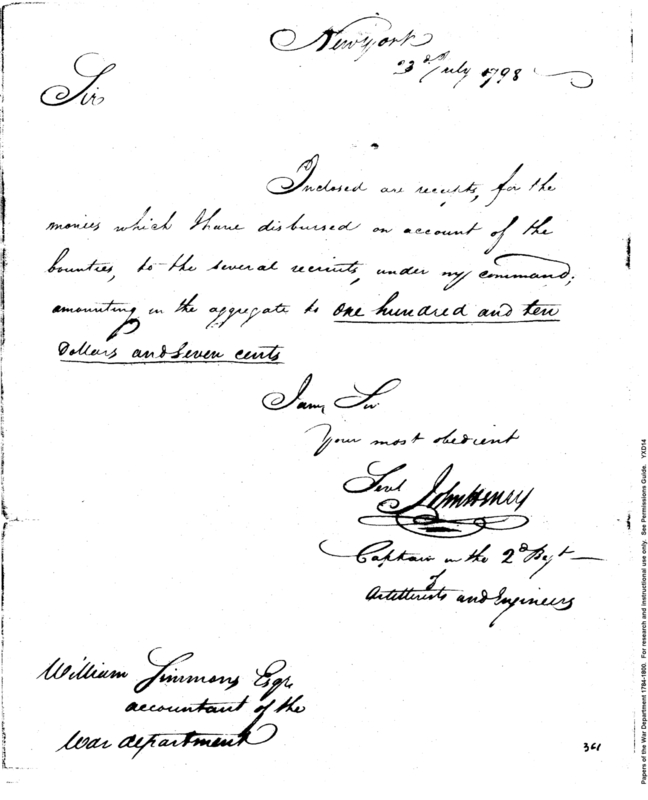 New York
23d July 1798
Sir
Inclosed are receipts, for the
monies which I have disbursed on account of the
bounties, to the several recruits, under my command;
amounting in the aggregate to one hundred and ten
Dollars and Seven cents
I am, Sir
Your most obedient
Servt John Henry
Captain in the 2d Regt
of
Artillerists and Engineers
William Simmons Esqr
accountant of the
War department
361
Papers of the War Department 1784-1800. For research and instructional use only. See Permissions Guide. YXD14